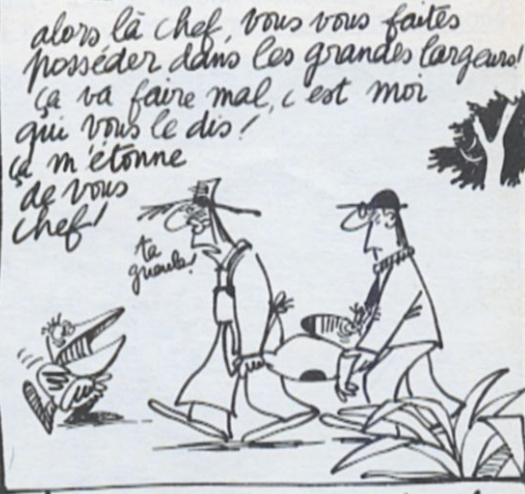 alors là chef, vous vous faites
posséder dans les grandes largeurs!
ça va faire mal, c'est moi
qui vous le dis!
ça m'étonne
de vous
chef!
ta
gueule!